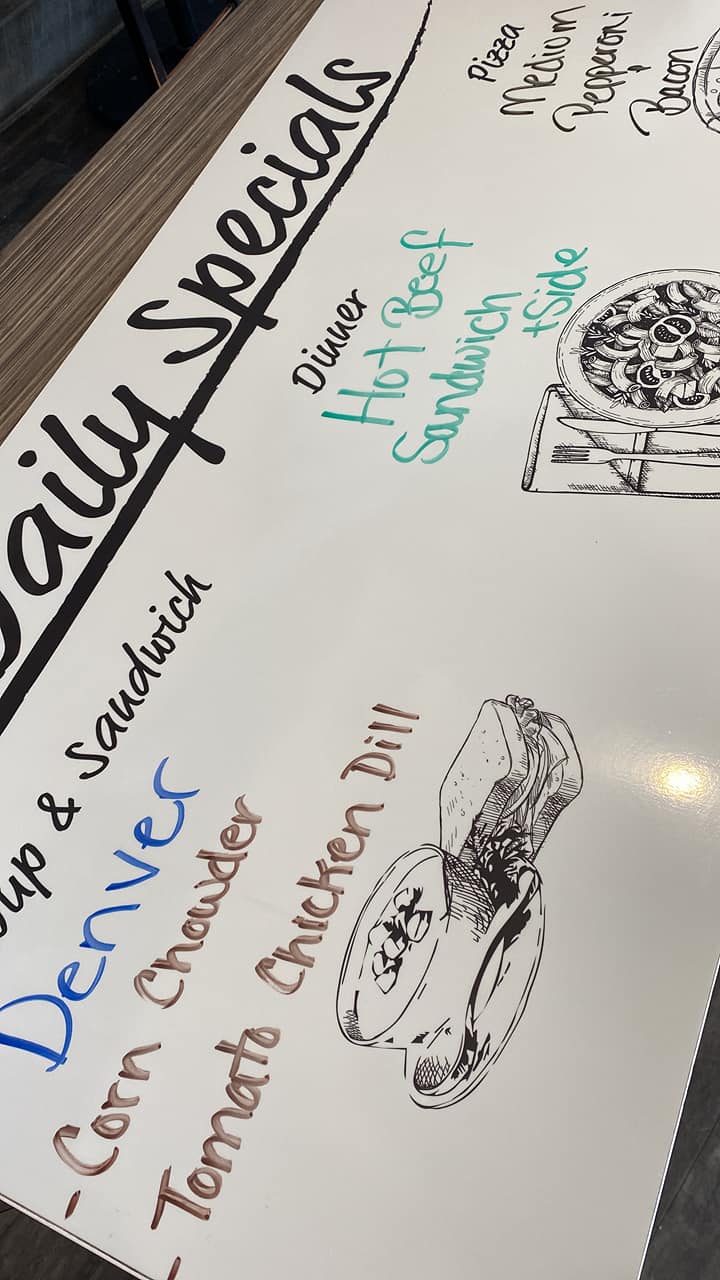 Daily Specials
Soup & Sandwich
Denver
- Corn Chowder
- Tomato Chicken Dill
Dinner
Hot Beef
Sandwich
+Side
Pizza
Medium
Pepperoni
+
Bacon